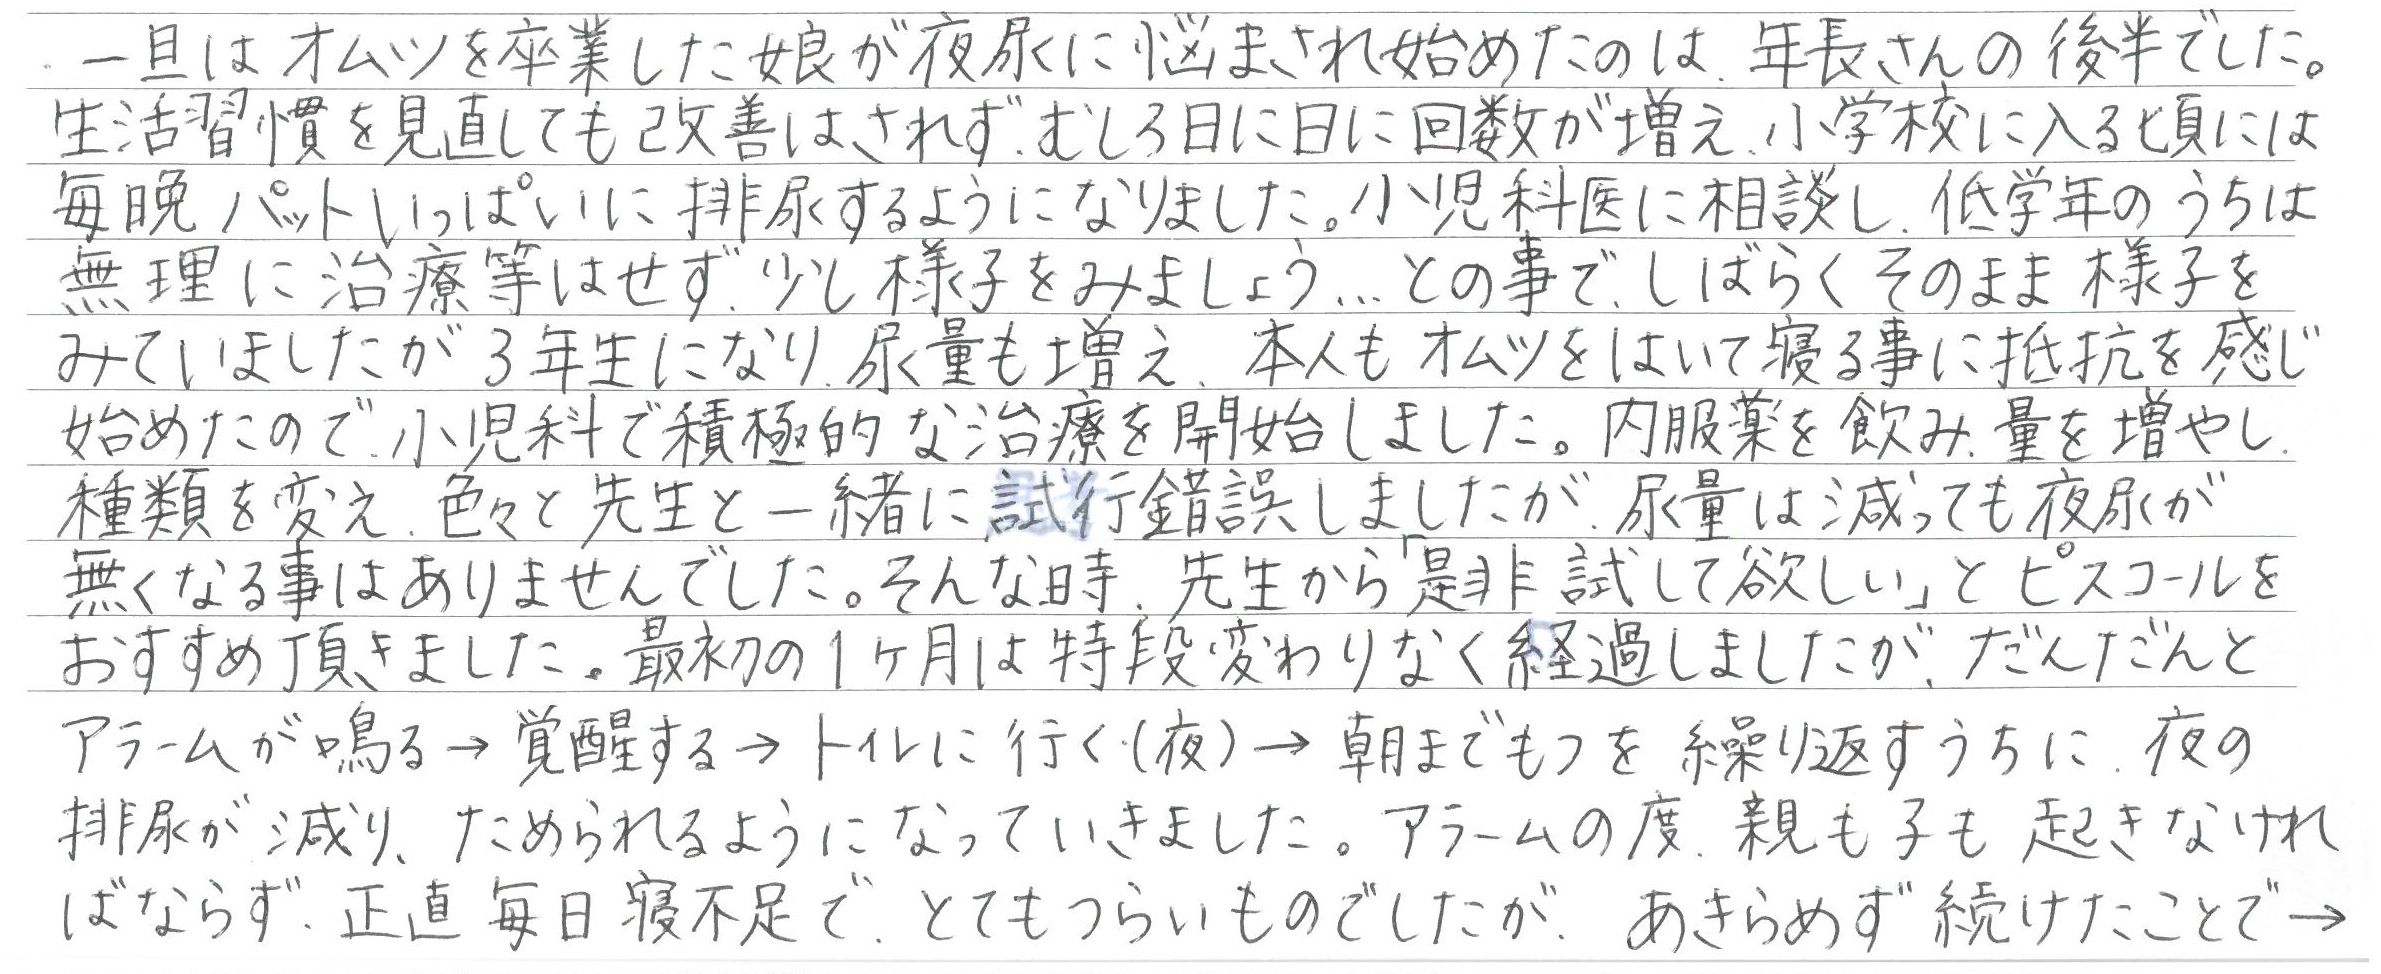 一旦はオムツを卒業した娘が夜尿に悩まされ始めたのは、年長さんの後半でした。
生活習慣を見直しても改善はされず、むしろ日に日に回数が増え、小学校に入る頃には
毎晩パットいっぱいに排尿するようになりました。小児科医に相談し、低学年のうちは
無理に治療等はせず、少し様子をみましょう…との事で、しばらくそのまま様子を
みていましたが3年生になり、尿量も増え、本人もオムツをはいて寝る事に抵抗を感じ
始めたので、小児科で積極的な治療を開始しました。内服薬を飲み、量を増やし、
種類を変え、色々と先生と一緒に試行錯誤しましたが、尿量は減っても夜尿が
無くなる事はありませんでした。そんな時、先生から「是非試して欲しい」とピスコールを
おすすめ頂きました。最初の1ヶ月は特段変わりなく経過しましたが、だんだんと
アラームが鳴る→覚醒する→トイレに行く(夜)→朝までもつを繰り返すうちに、夜の
排尿が減り、ためられるようになっていきました。アラームの度、親も子も起きなけれ
ばならず、正直毎日寝不足で、とてもつらいものでしたが、あきらめず続けたことで→